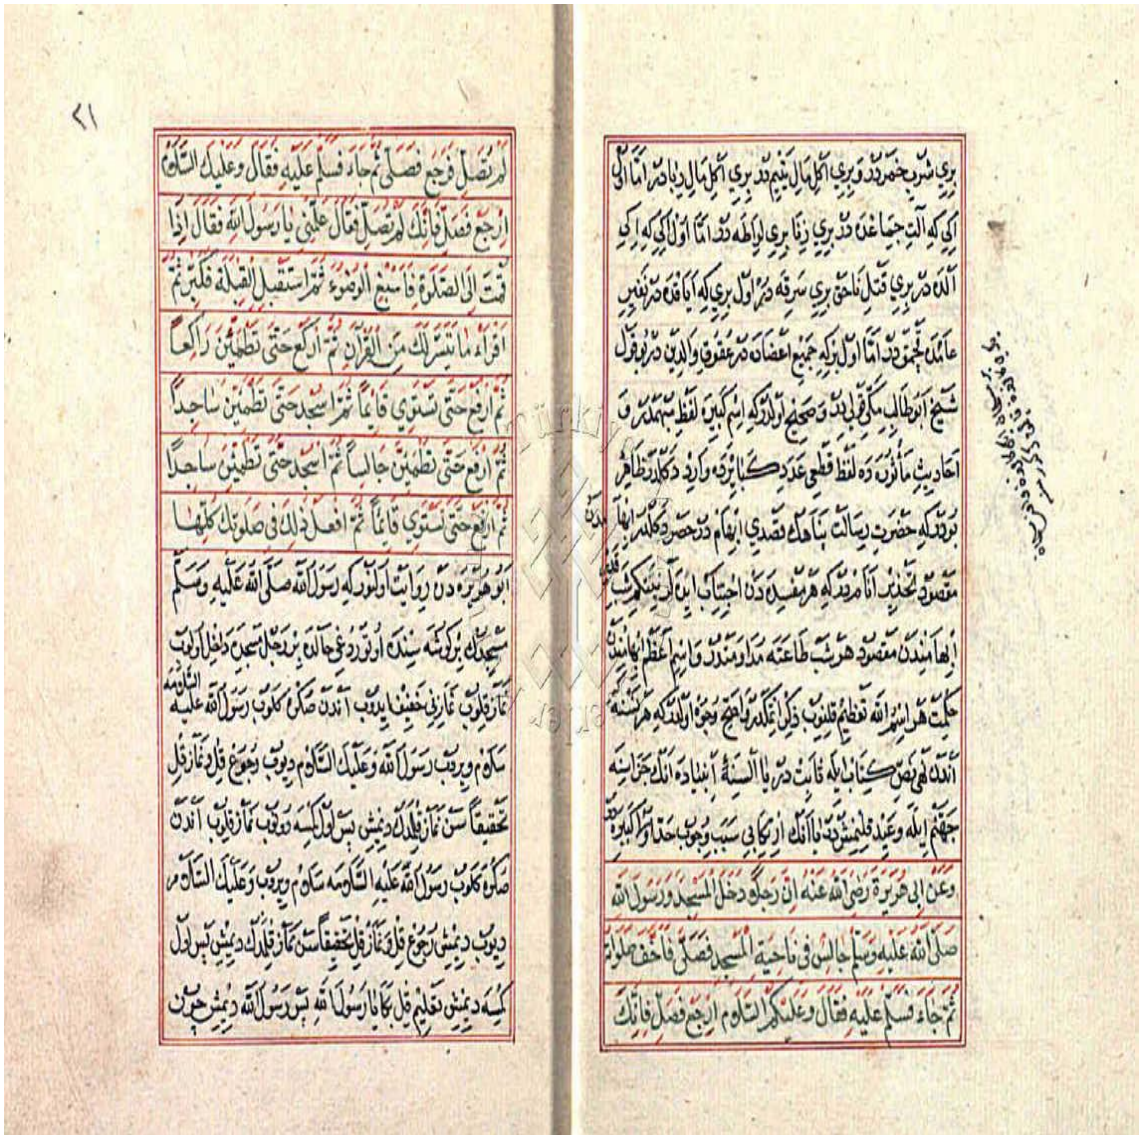 بري شرب خمردر و بري اكل مال يتيمدر بري اكل مال ربادر اما اول
ايكي كه آلت جماعدن در بري زنا بري لواطه در اما اول ايكي كه ايكي
الده در بري قتل ناحق بري سرقه در اول بري كه اياقده در نفير
عامدن قچمقدر اما اول بر كه جميع اعضاده در عقوق والدين در بو قول
شيخ ابو طالب مكي قولي در و صحيح اولدر كه اسم كبيره لفظ مبهمدر و
احاديث مأثوره ده لفظ قطعي عدد كبايرده وارد دكلدر ظاهر
بودر كه حضرت رسالت پناهك قصدي ابهام در حصر دكلدر ابهامدن
مقصود تحذير انامدر كه هر مفسده دن اجتناب ايده لر نتكيم شب قدر
ابهامندن مقصود هر شب طاعته مداومتدر و اسم اعظم ابهامندن
حكمت هر اسم الله تعظيم قلنوب ذكر اتمكدر اصح وجوه اولدر كه هر نسنه
آندن نهي نص كتاب ايله ثابت در يا السنه انبياده انك جزاسنه
جهنم ايله وعيد قلنمش در يا آنك ارتكابي سبب وجوب حد اولا كبيره در
وعن ابى هريرة رضى الله عنه ان رجلا دخل المسجد ورسول الله
صلى الله عليه وسلم جالس فى ناحية المسجد فصلى فاخف صلوته
ثم جاء فسلم عليه فقال وعليكم السلام ارجع فصل فانك
٢١
لم تصل فرجع فصلى ثم جاء فسلم عليه فقال وعليك السلام
ارجع فصل فانك لم تصل فقال علمنى يا رسول الله فقال اذا
قمت الى الصلوة فاسبغ الوضوء ثم استقبل القبلة فكبر ثم
اقراء ما تيسر لك من القرآن ثم اركع حتى تطمئن راكعا
ثم ارفع حتى تستوي قايما ثم اسجد حتى تطمئن ساجدا
ثم ارفع حتى تطمئن جالسا ثم اسجد حتى تطمئن ساجدا
ثم ارفع حتى تستوي قايما ثم افعل ذلك فى صلوتك كلها
ابو هريره دن روايت اولنور كه رسول الله صلى الله عليه وسلم
مسجدك بر كوشه سنده اوتورديغى حالده بر رجل مسجده داخل اولوب
نماز قلوب نمازني خفيف ايدوب آندن صكره كلوب رسول الله عليه السلامه
سلام ويروب رسول الله وعليك السلام ديوب رجوع قل و نماز قل
تحقيقا سن نماز قلمدك ديمش پس اول كسه دونوب نماز قلوب آندن
صكره كلوب رسول الله عليه السلامه سلام ويروب وعليك السلام
ديوب ديمش رجوع قل و نماز قل تحقيقا سن نماز قلمدك ديمش پس اول
كسه ديمش تعليم قل بكا يا رسول الله پس رسول الله ديمش